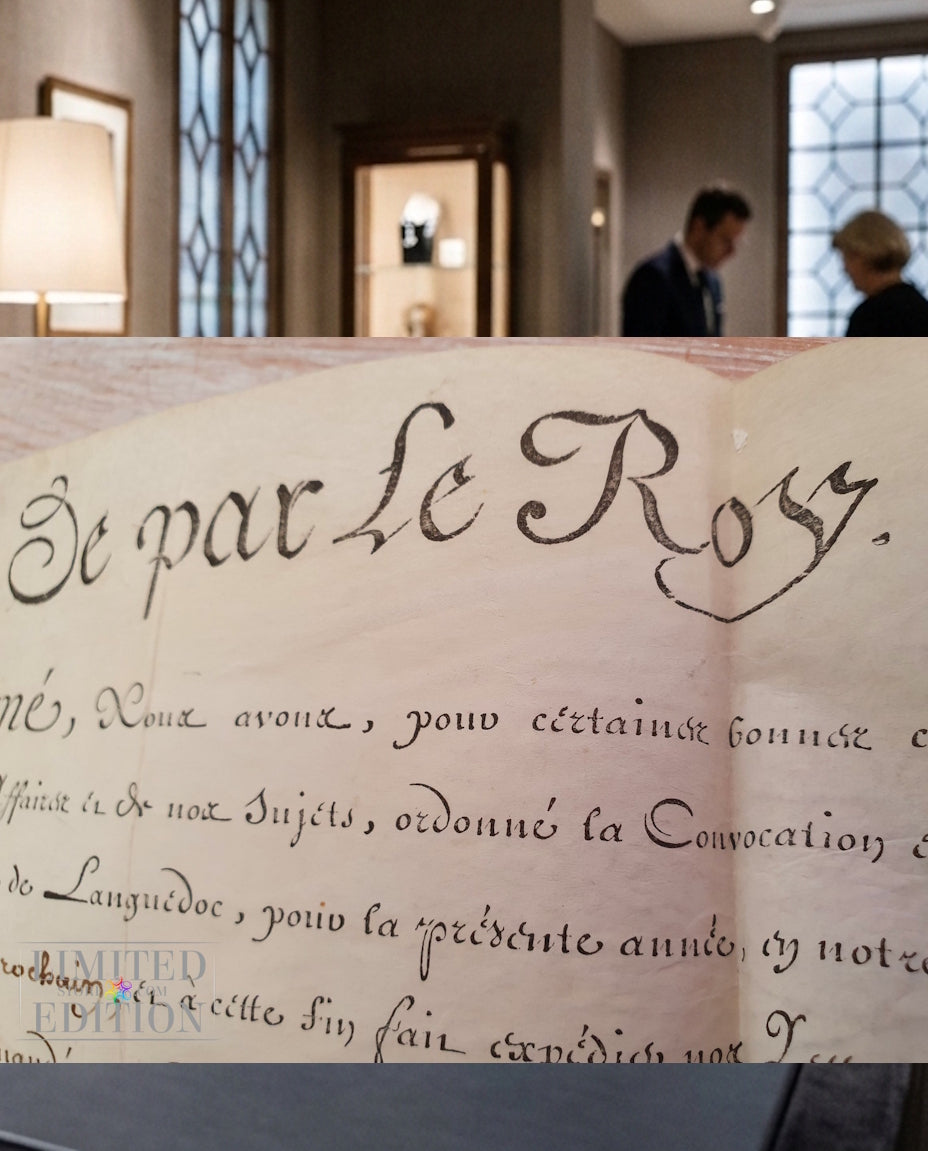 De par Le Roy.
mé, Nous avons, pour certaines bonnes c
Affaires et de nos Sujets, ordonné la Convocation d
de Languédoc, pour la présente année, en notre
rochain, et à cétte fin fait expédier nos
LIMITED
EDITION